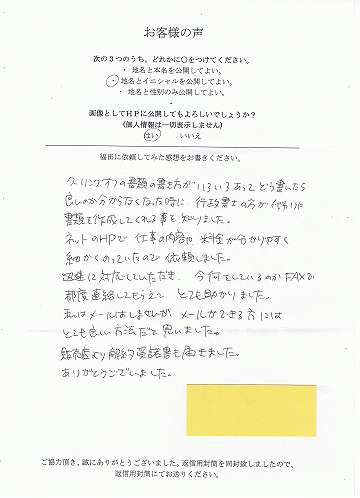 お客様の声
次の3つのうち、どれかに○をつけてください。
・ 地名と本名を公開してよい。
・ 地名とイニシャルを公開してよい。
・ 地名と性別のみ公開してよい。
画像としてHPに公開してもよろしいでしょうか？
(個人情報は一切表示しません)
はい　いいえ
福田に依頼してみた感想をお書きください。
クーリングオフの書類の書き方がいろいろあってどう書いたら
良いのか分からなくなった時に 行政書士の方が代わりに
書類を作成してくれる事を知りました。
ネットのHPで 仕事の内容や 料金が分かりやすく
細かくのっていたので依頼しました。
迅速に対応していただき、今何をしているのかFAXで
都度連絡してもらえて とても助かりました。
私はメールはしませんが、メールができる方には
とても良い方法だと思いました。
販売店より解約承諾書も届きました。
ありがとうございました。
ご協力頂き、誠にありがとうございました。返信用封筒を同封致しましたので、
返信用封筒にてお送りください。